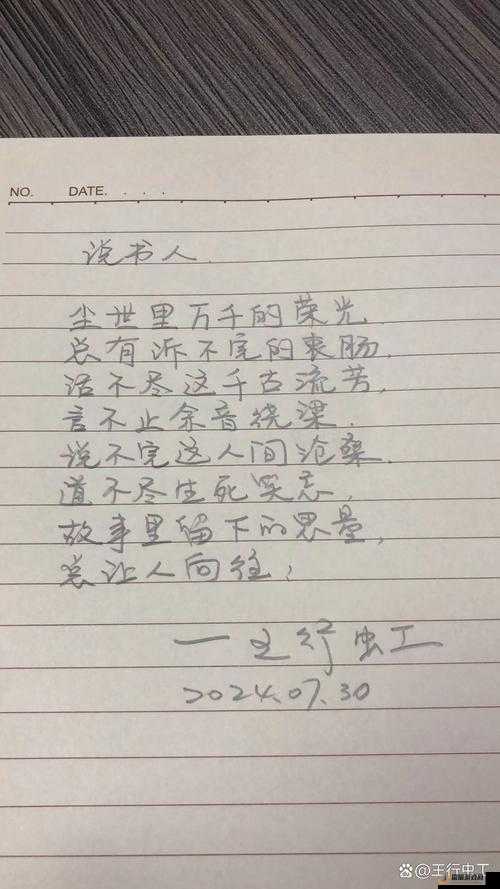 NO. DATE. . . .
说书人.
尘世里万千的荣光
总有诉不完的衷肠.
话不尽这千古流芳,
言不止余音绕梁.
说不完这人间沧桑.
道不尽生死奚忘,
故事里留下的思量,
总让人向往;
一王行虫工
2024.07.30
@王行虫工